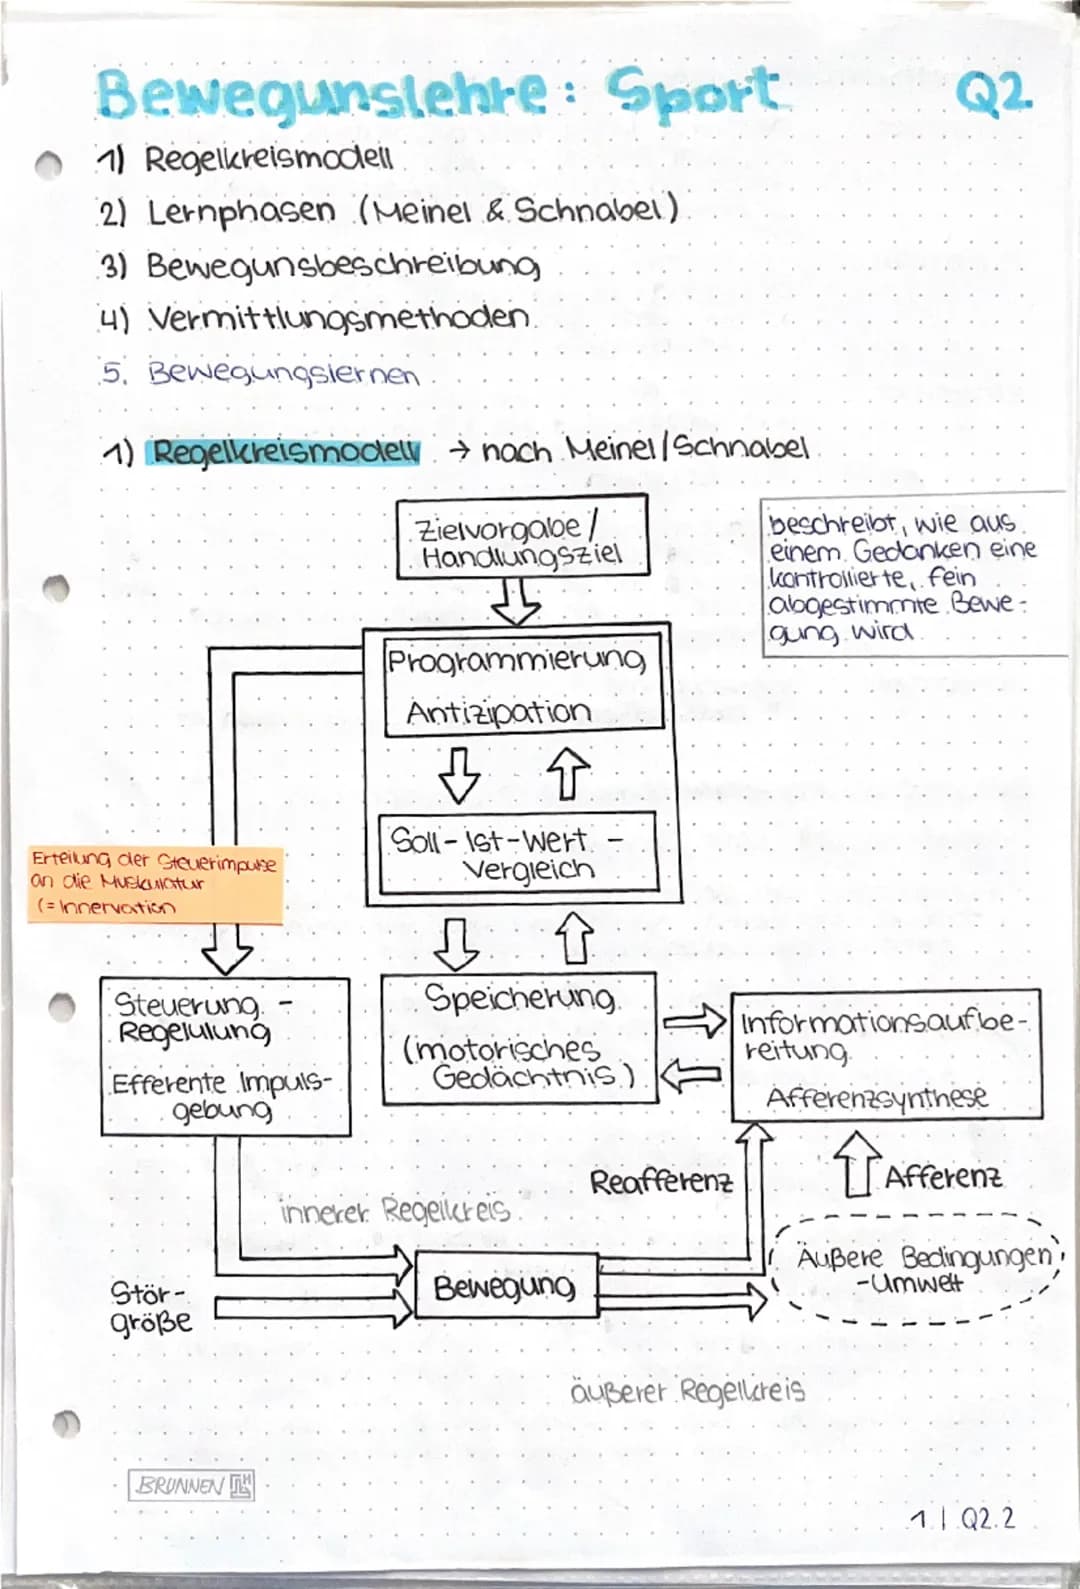 Bewegunslehre: Sport Q2
1) Regelkreismodell
2) Lernphasen (Meinel & Schnabel)
3) Bewegunsbeschreibung
4) Vermittlungsmethoden
5. Bewegungslernen
1) Regelkreismodell → nach Meinel/Schnabel
Zielvorgabe/
Handlungsziel
beschreibt, wie aus
einem Gedanken eine
kontrollierte, fein
abgestimmte Bewe-
gung wird
Programmierung
Antizipation
Soll-Ist-Wert-
Vergleich
Erteilung der Steuerimpulse
an die Muskulatur
(= Innervation
Steuerung-
Regelulung
Efferente Impuls-
gebung
Speicherung
(motorisches
Gedächtnis)
Informationsaufbe-
reitung
Afferenzsynthese
Reafferenz
Afferenz
innerer Regelkreis
Äußere Bedingungen
-Umwelt
Bewegung
Stör-
größe
äußerer Regelkreis
BRUNNEN
1 | Q2.2